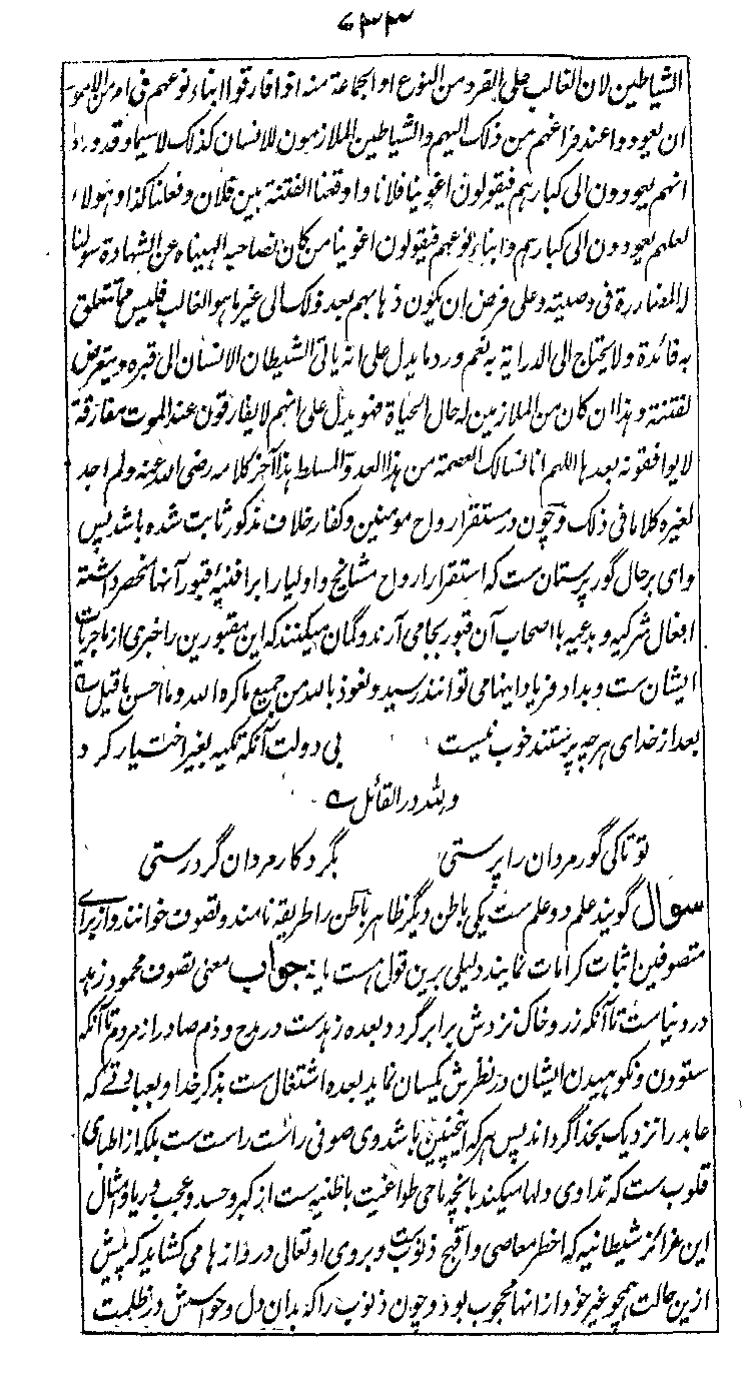 ٧٣٣
الشیاطین لان الغالب علی الفرد من النوع او الجماعة منه اذا فارقوا ابناء نوعهم فی امر من الامور
ان یعودوا عند فراغهم من ذلک الیهم والشیاطین الملازمون للانسان کذلک لا سیما وقد ورد
انهم یعودون الی کبارهم فیقولون اغوینا فلانا واوقعنا الفتنة بین فلان وفعلنا کذا وهولاء
لعلهم یعودون الی کبارهم وابناء نوعهم فیقولون اغوینا من کان نصاحبه الهیناه عن الشهادة سولنا
له المضاررة فی وصیته وعلی فرض ان یکون ذهابهم بعد ذلک الی غیر ما هو الغالب فلیس مما تتعلق
به فائدة ولا یحتاج الی الدرایة به نعم ورد ما یدل علی انه یاتی الشیطان الانسان الی قبره ویتعرض
لفتنته وهذا ان کان من الملازمین له حال الحیاة فهو یدل علی انهم لا یفارقون عند الموت مفارقة
لا یوافقونه بعدها اللهم انا نسالک العصمة من هذا العدو المسلط هذا آخر کلامه رضی الله عنه ولم اجد
لغیره کلاما فی ذلک وچون در مستقر ارواح مومنین وکفار خلاف مذکور ثابت شده باشد پس
وای بر حال گور پرستان ست که استقرار ارواح مشائخ واولیا را بر افنیهٔ قبور آنها منحصر داشته
افعال شرکیه وبدعیه با اصحاب آن قبور بجا می آرند وگمان میکنند که این مقبورین را خبری از ماجریات
ایشان ست وبداد فریاد اینها می توانند رسید ونعوذ بالله من جمیع ما کره الله وما احسن ما قیل ه
بعد از خدای هر چه پرستند خوب نیست بی دولت آنکه تکیه بغیر اختیار کرد
ولله در القائل ه
تو تا کی گور مردان را پرستی بگرد کار مردان گرد رستی
سوال گویند علم دو علم ست یکی باطن دیگر ظاهر باطن را طریقه نامند وتصوف خوانند واز برای
متصوفین اثبات کرامات نمایند دلیلی برین قول هست یا نه جواب معنی تصوف محمود زهد
در دنیاست تا آنکه زر وخاک نزدش برابر گردد بعده زهدست در مدح وذم صادر از مردم تا آنکه
ستودن ونکوهیدن ایشان در نظرش یکسان نماید بعده اشتغال ست بذکر خدا وبعبادتے که
عابد را نزدیک بخدا گرداند پس هر که اینچنین باشد وی صوفی راست راست ست بلکه از اطبای
قلوب ست که تداوی دلها میکند بانچه ماحی طواغیت باطنیه ست از کبر وحسد وعجب وریا وامثال
این غرائز شیطانیه که اخطر معاصی واقبح ذنوب ست وبروی او تعالی دروازها می کشاید که پیش
ازین حالت همچو غیر خود از انها محجوب بود وچون ذنوب را که بدان دل وحواسش در ظلمت